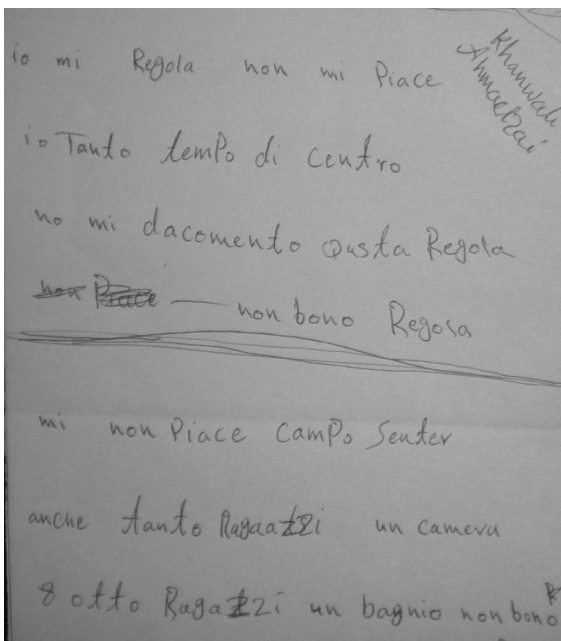 io mi Regola non mi Piace
Khanwali
Ahmadzai
io Tanto temPo di centro
no mi dacomento Qusta Regola
non Piace — non bono Regosa
mi non Piace CamPo Senter
anche tanto Ragaazzi un camera
8 otto Ragazzi un bagnio non bono